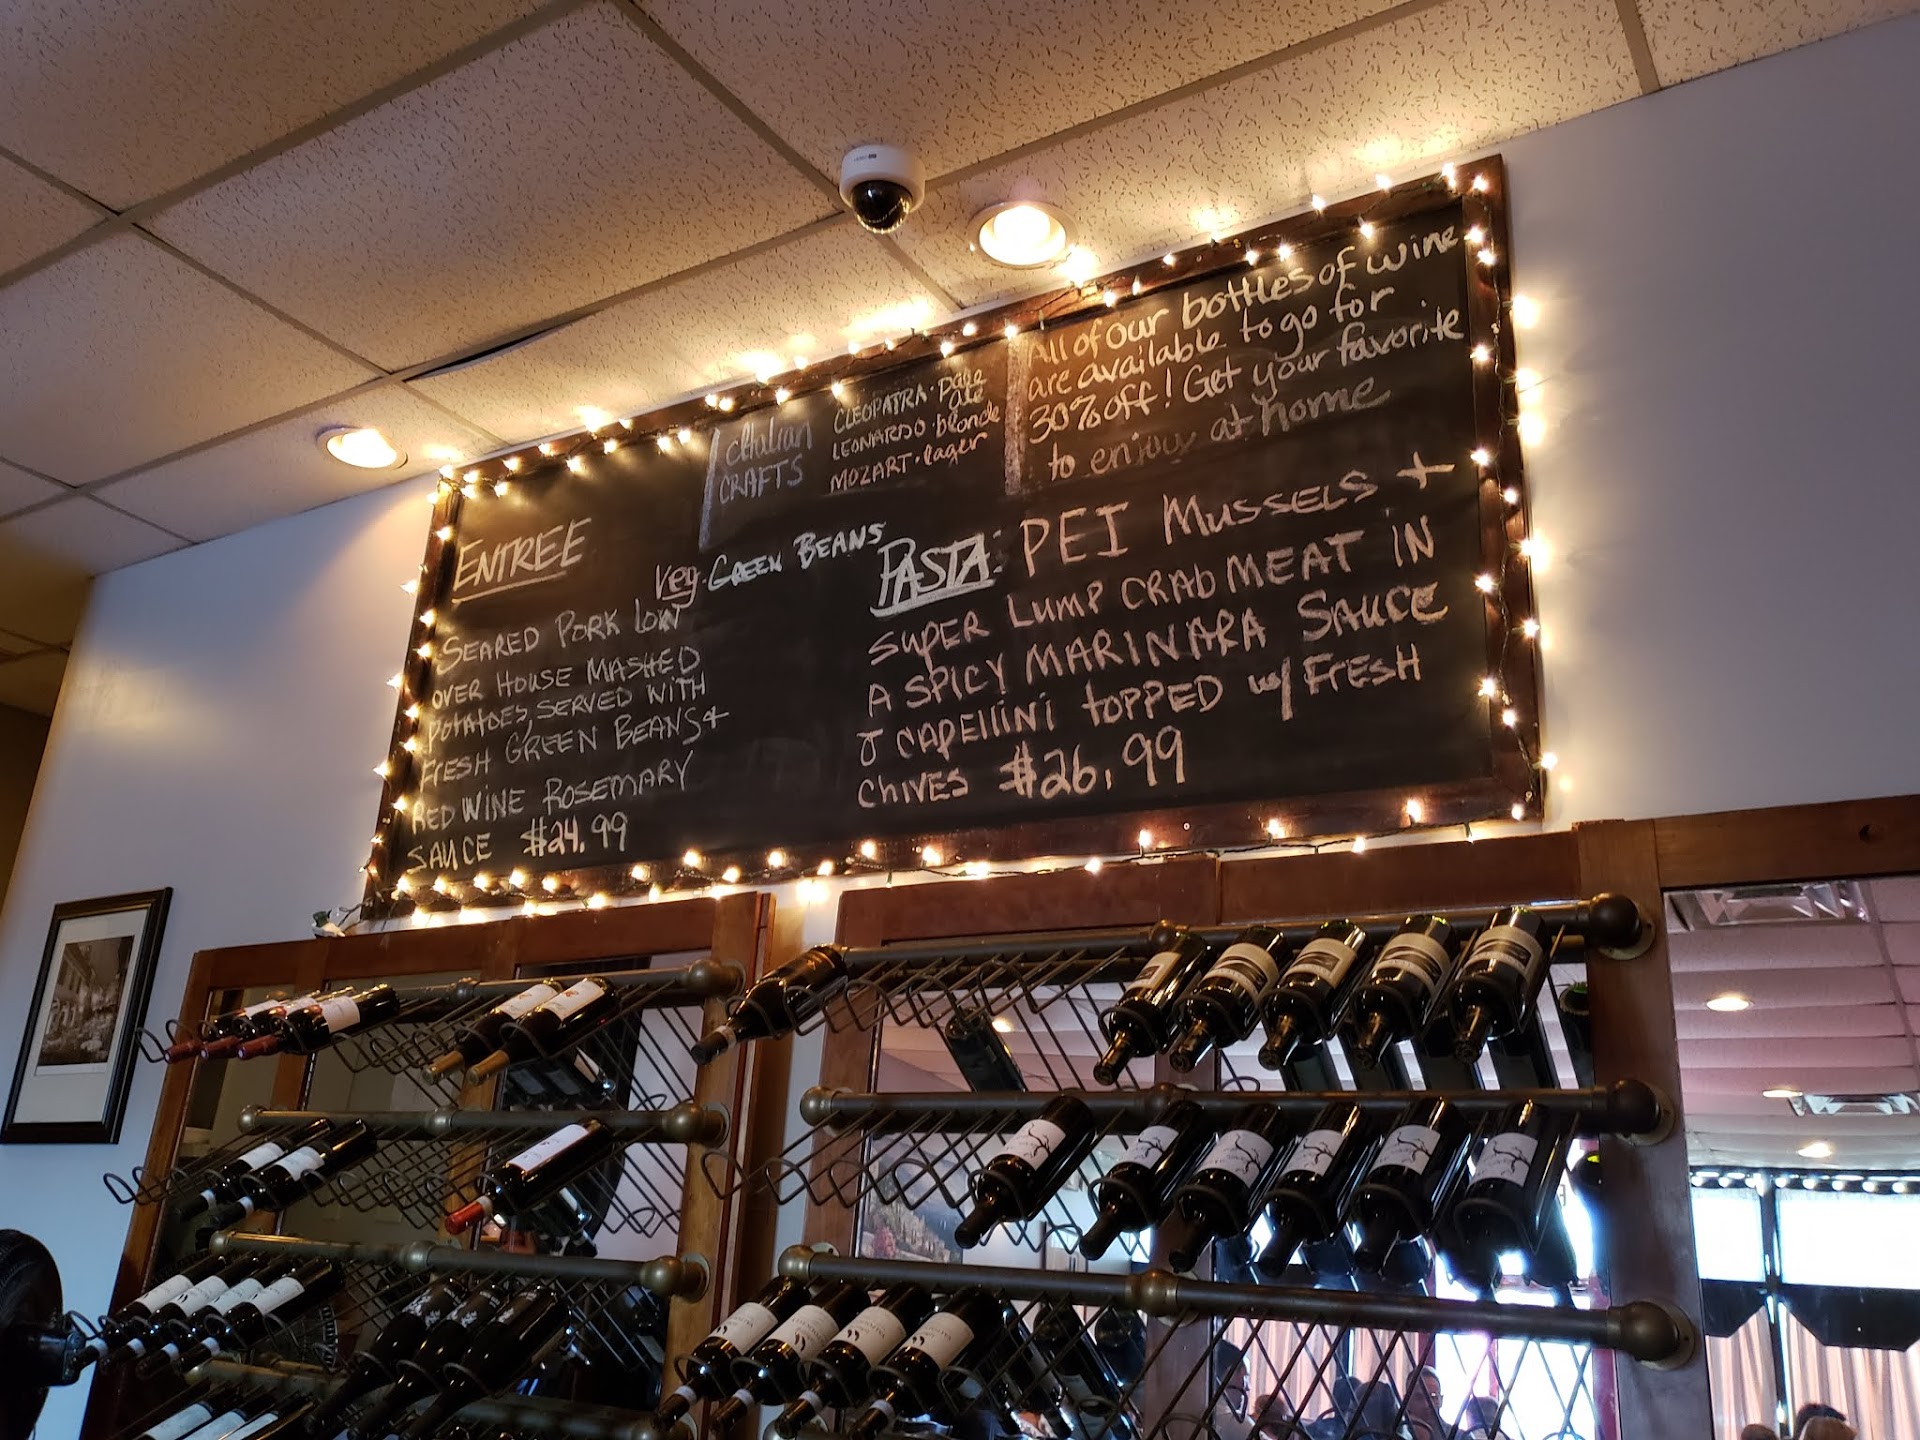 Italian
CRAFTS
CLEOPATRA · pale
ale
LEONARDO · blonde
MOZART · lager
All of our bottles of wine
are available to go for
30% off! Get your favorite
to enjoy at home
ENTREE
SEARED PORK LOIN
OVER HOUSE MASHED
POTATOES, SERVED WITH
FRESH GREEN BEANS +
RED WINE ROSEMARY
SAUCE $24.99
Veg. GREEN BEANS
PASTA: PEI MUSSELS +
SUPER LUMP CRAB MEAT IN
A SPICY MARINARA SAUCE
CAPELLINI TOPPED w/ FRESH
CHIVES $26.99